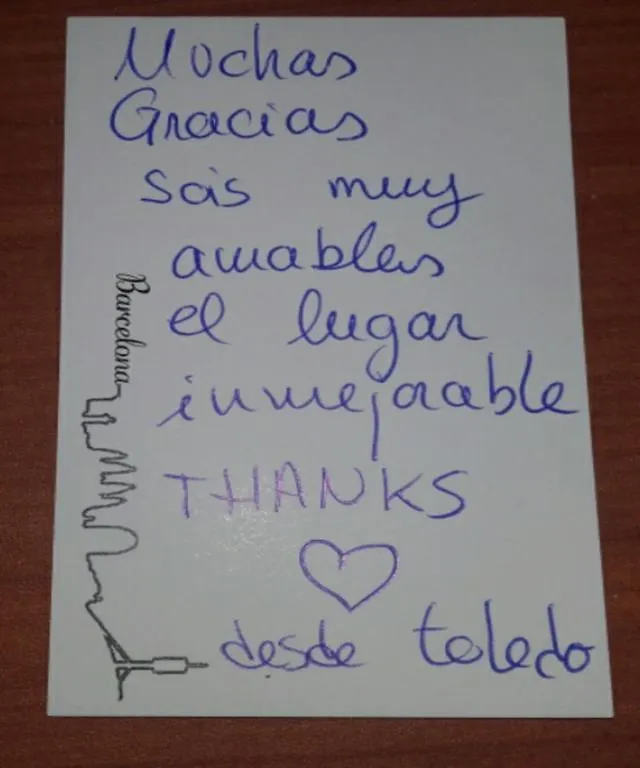 Muchas
Gracias
sois muy
amables
el lugar
inmejorable
THANKS
desde toledo
Barcelona